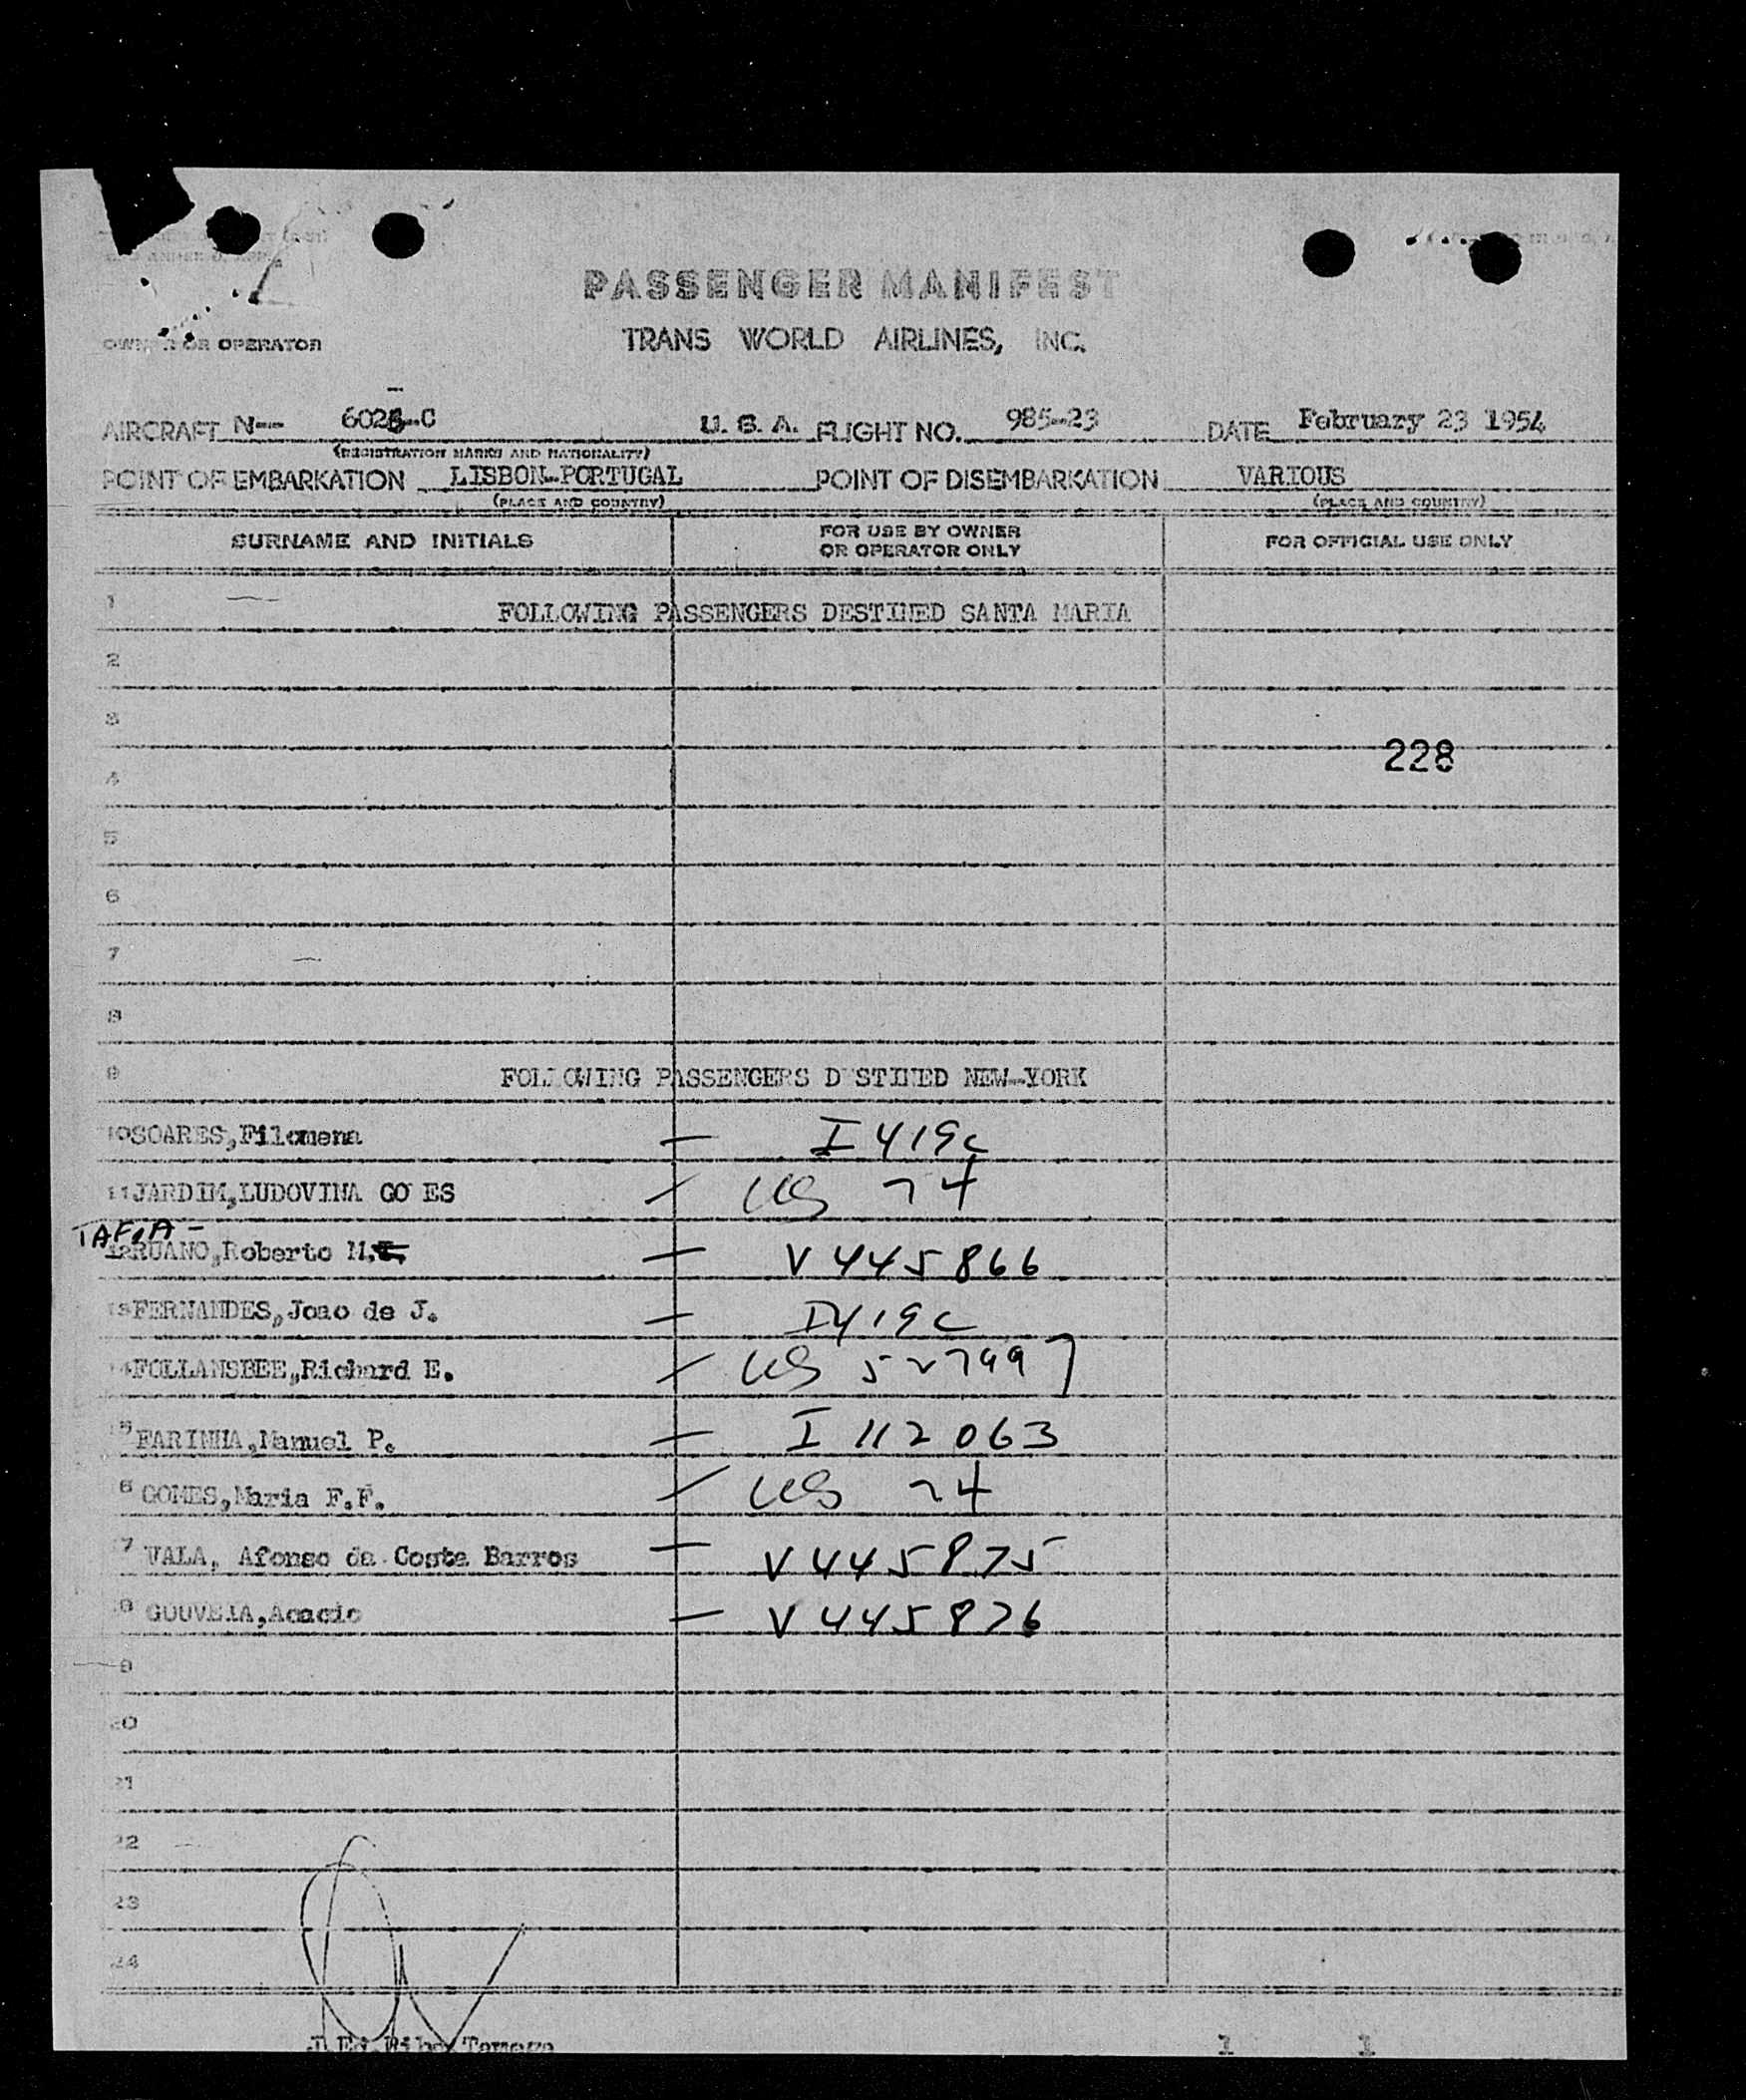 PASSENGER MANIFEST
TRANS WORLD AIRLINES, INC.
OR OPERATOR
AIRCRAFT N-- -C U. S. A. FLIGHT NO. 985-23 DATE February 23 1954
(REGISTRATION MARKS AND NATIONALITY)
POINT OF EMBARKATION LISBON-PORTUGAL POINT OF DISEMBARKATION VARIOUS
(PLACE AND COUNTRY) (PLACE AND COUNTRY)
SURNAME AND INITIALS FOR USE BY OWNER OR OPERATOR ONLY FOR OFFICIAL USE ONLY
1 FOLLOWING PASSENGERS DESTINED SANTA MARIA
2
3
228
4
5
6
7
8
9 FOLLOWING PASSENGERS D STINED NEW-YORK
10 SOARES, Filomena — I 419c
11 JARDIM, LUDOVINA GO ES / US 74
TAFIA -
12 RUANO, Roberto M. — V 445866
13 FERNANDES, Joao de J. — I419c
14 FOLLANSBEE, Richard E. / US 52799
15 FARINHA, Manuel P. — I 112 063
6 GOMES, Maria F.F. / US 74
7 VALA, Afonso da Costa Barros — V 445875
8 GOUVEIA, Acacio — V 445876
9
20
21
22
23
24
1 1